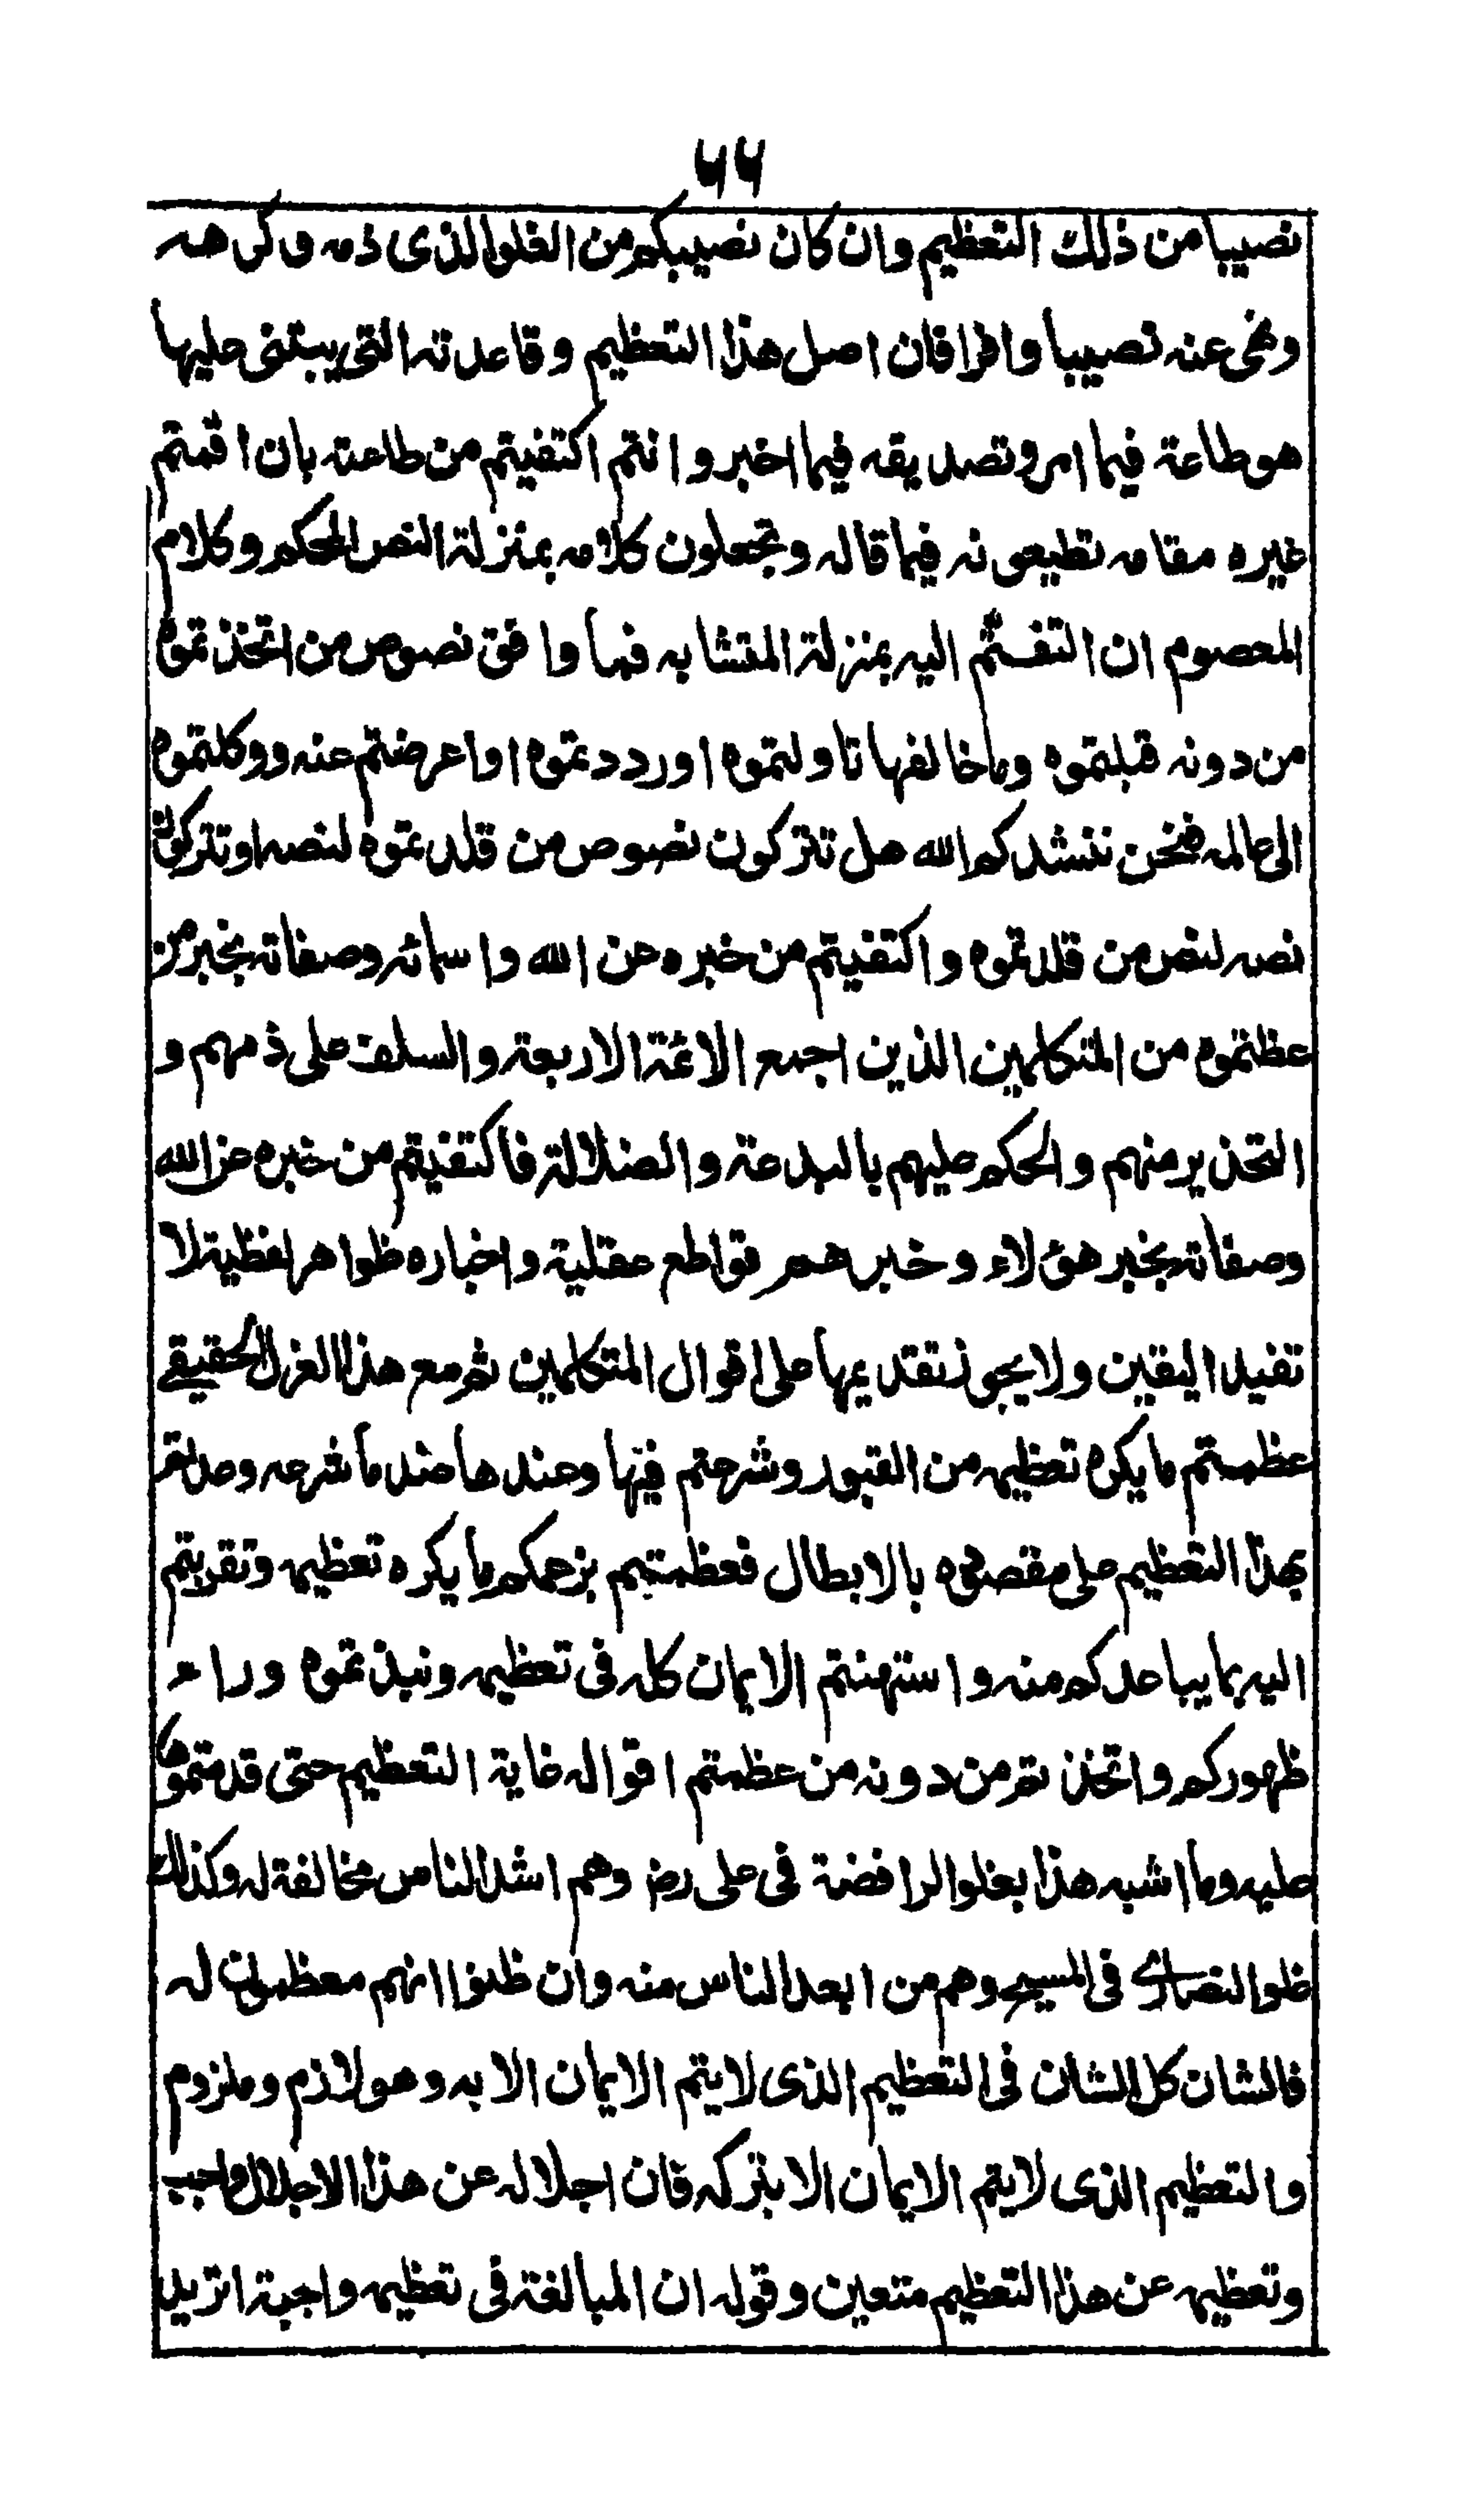 ٦٦
نصيبا من ذلك التعظيم وان كان نصيبكم من الغلو الذى ذمه وكرهه
ونهى عنه نصيبا وافرا فان اصل هذا التعظيم وقاعدته التى يبتنى عليها
هو طاعة فيما امر وتصديقه فيما اخبر وانتم اكتفيتم من طاعته بان اقمتم
غيره مقامه تطيعونه فيما قاله وتجعلون كلامه بمنزلة النص المحكم وكلام
المعصوم ان التفتم اليه بمنزلة المتشابه فما وافق نصوص من اتخذتموه
من دونه قبلتموه وما خالفها تاولتموه او رددتموه او اعرضتم عنه ووكلتموه
الى عالمه فنحن ننشدكم الله هل تتركون نصوص من قلدتموه لنصه او تتركون
نصه لنص من قلدتموه واكتفيتم من خبره عن الله واسمائه وصفاته بخبر من
عظمتموه من المتكلمين الذين اجمع الائمة الاربعة والسلف على ذمهم و
التحذير منهم والحكم عليهم بالبدعة والضلالة فاكتفيتم من خبره عن الله
وصفاته بخبر هؤلاء وخبرهم قواطع عقلية واخباره ظواهر لفظية لا
تفيد اليقين ولا يجوز تقديمها على اقوال المتكلمين ثم مع هذا العزل الحقيقے
عظمتم ما يكره تعظيمه من القبور وشرعتم فيها وعندها ضد ما شرعه وعدلتم
بهذا التعظيم على مقصوده بالابطال فعظمتم بزعمكم ما يكره تعظيمه وتقربتم
اليه بما يباعدكم منه واستهنتم الايمان كله فى تعظيمه ونبذتموه وراء
ظهوركم واتخذتم من دونه من عظمتم اقواله غاية التعظيم حتى قدمتموها
عليه وما اشبه هذا بغلو الرافضة فى على رض وهم اشد الناس مخالفة له وكذلك
غلو النصارى فى المسيح وهم من ابعد الناس منه وان ظنوا انهم معظمون له
فالشان كل الشان فى التعظيم الذى لا يتم الايمان الا به وهو لازم وملزوم
والتعظيم الذى لا يتم الايمان الا بتركه فان اجلاله عن هذا الاجلال واجب
وتعظيمه عن هذا التعظيم متعين وقوله ان المبالغة فى تعظيمه واجبة اتريد